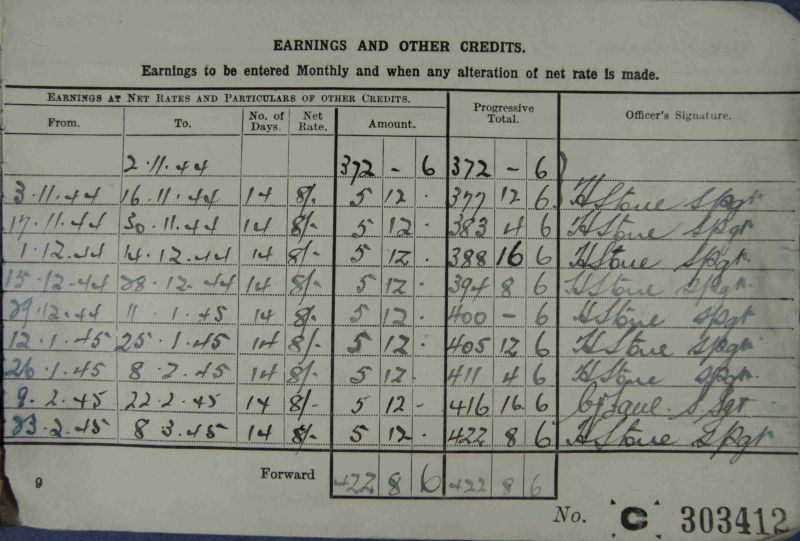 EARNINGS AND OTHER CREDITS.
Earnings to be entered Monthly and when any alteration of net rate is made.
EARNINGS AT NET RATES AND PARTICULARS OF OTHER CREDITS.
From. To. No. of Days. Net Rate. Amount. Progressive Total. Officer's Signature.
2·11·44 372 - 6 372 - 6
3·11·44 16·11·44 14 8/- 5 12 · 377 12 6 H Stone S/Sgt
17·11·44 30·11·44 14 8/- 5 12 · 383 4 6 H Stone S/Sgt
1·12·44 14·12·44 14 8/- 5 12 · 388 16 6 H Stone S/Sgt
15·12·44 28·12·44 14 8/- 5 12 · 394 8 6 H Stone S/Sgt
29·12·44 11·1·45 14 8/- 5 12 · 400 - 6 H Stone S/Sgt
12·1·45 25·1·45 14 8/- 5 12 · 405 12 6 H Stone S/Sgt
26·1·45 8·2·45 14 8/- 5 12 · 411 4 6 H Stone S/Sgt
9·2·45 22·2·45 14 8/- 5 12 · 416 16 6 S/Sgt
23·2·45 8·3·45 14 8/- 5 12 · 422 8 6 H Stone S/Sgt
9 Forward 422 8 6 422 8 6
No. C 303412